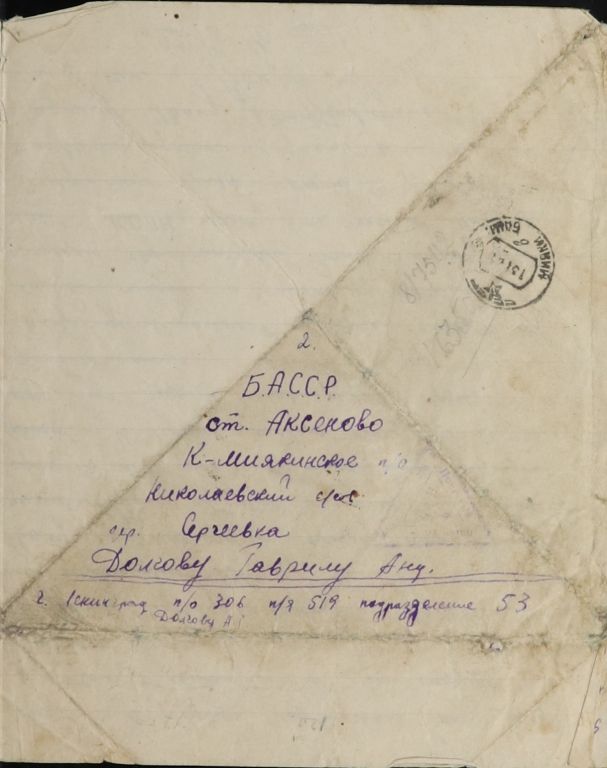 2.
Б.А.С.С.Р.
ст. Аксеново
К-Миякинское п/о
Николаевский с/сов
дер. Сергеевка
Долгову Гаврилу Анд.
г. Ленинград п/о 306 п/я 519 подразделение 53
Долгову А Г
МИЯКИ БАШ.